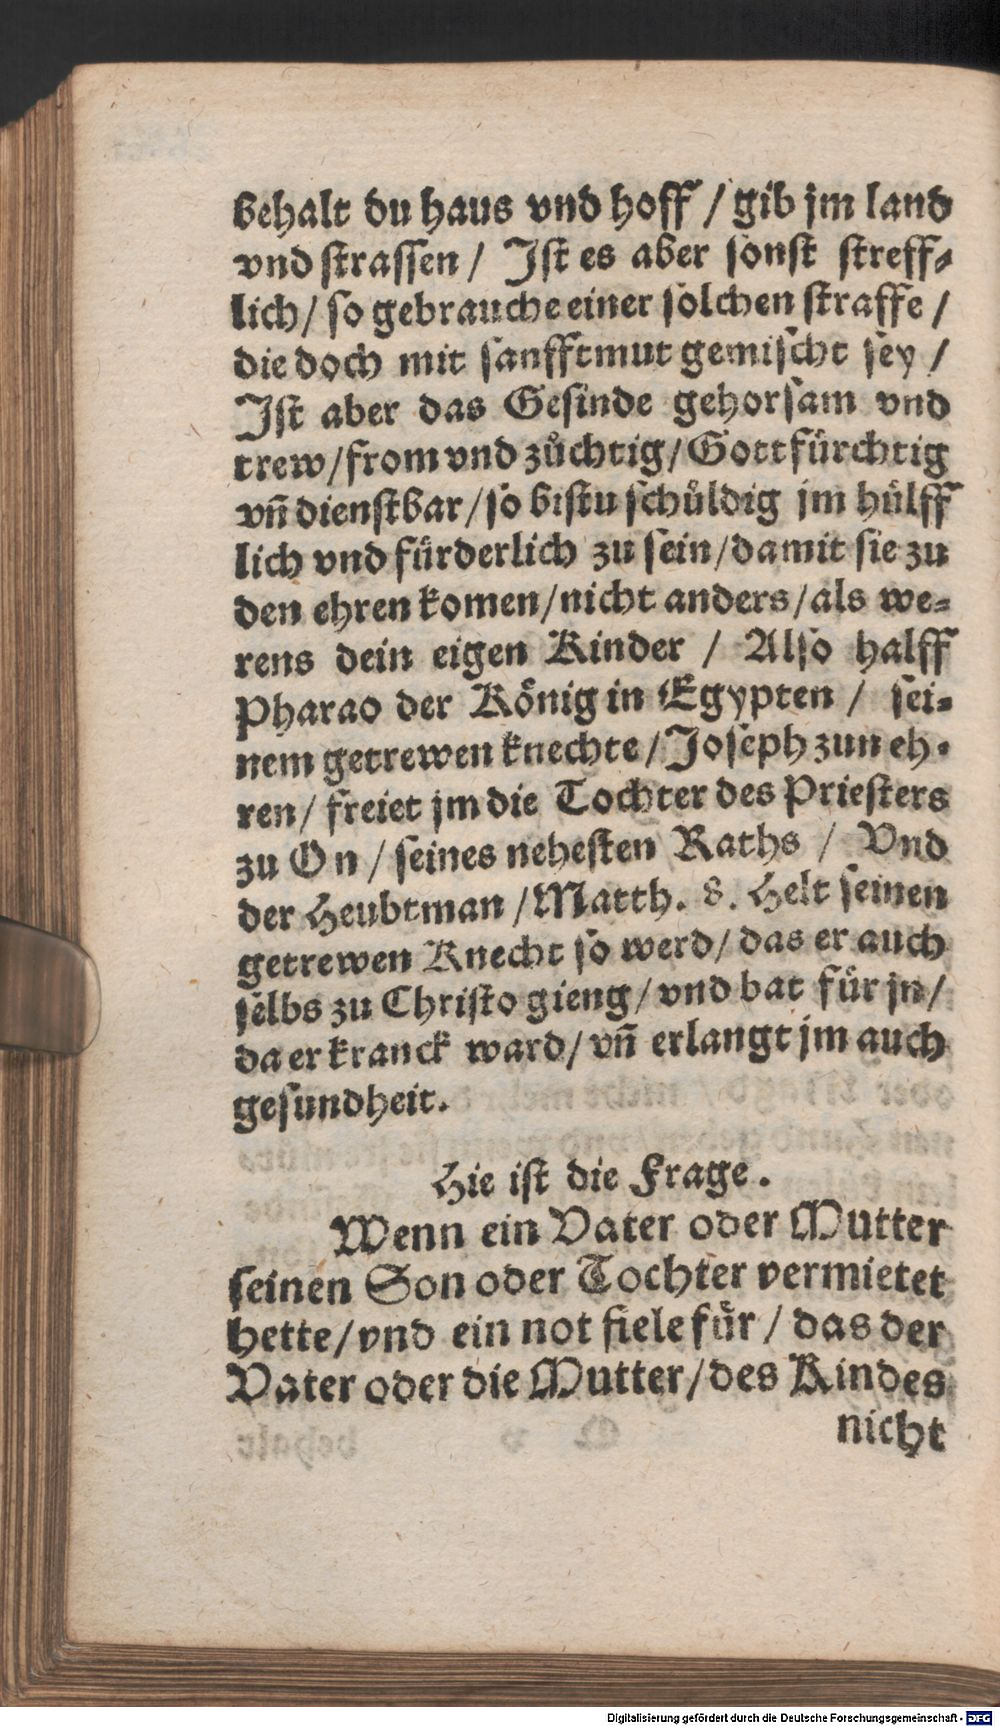 behalt du haus vnd hoff / gib jm land
vnd straſſen / Jſt es aber ſonſt ſtreff⸗
lich / ſo gebrauche einer ſolchen ſtraffe /
die doch mit ſanfftmut gemiſcht ſey /
Jſt aber das Geſinde gehorſam vnd
trew / from vnd zůchtig / Gottfürchtig
vñ dienſtbar / ſo biſtu ſchůldig jm hülff
lich vnd fürderlich zu ſein / damit ſie zu
den ehren komen / nicht anders / als we⸗
rens dein eigen Kinder / Alſo halff
Pharao der König in Egypten / ſei⸗
nem getrewen knechte / Joſeph zun eh⸗
ren / freiet jm die Tochter des Prieſters
zu On / ſeines neheſten Raths / Vnd
der Heubtman / Matth. 8. Helt ſeinen
getrewen Knecht ſo werd / das er auch
ſelbs zu Chriſto gieng / vnd bat für jn /
da er kranck ward / vñ erlangt jm auch
geſundheit.
Hie iſt die Frage.
Wenn ein Vater oder Mutter
ſeinen Son oder Tochter vermietet
hette / vnd ein not fiele für / das der
Vater oder die Mutter / des Kindes
nicht
Digitalisierung gefördert durch die Deutsche Forschungsgemeinschaft - DFG